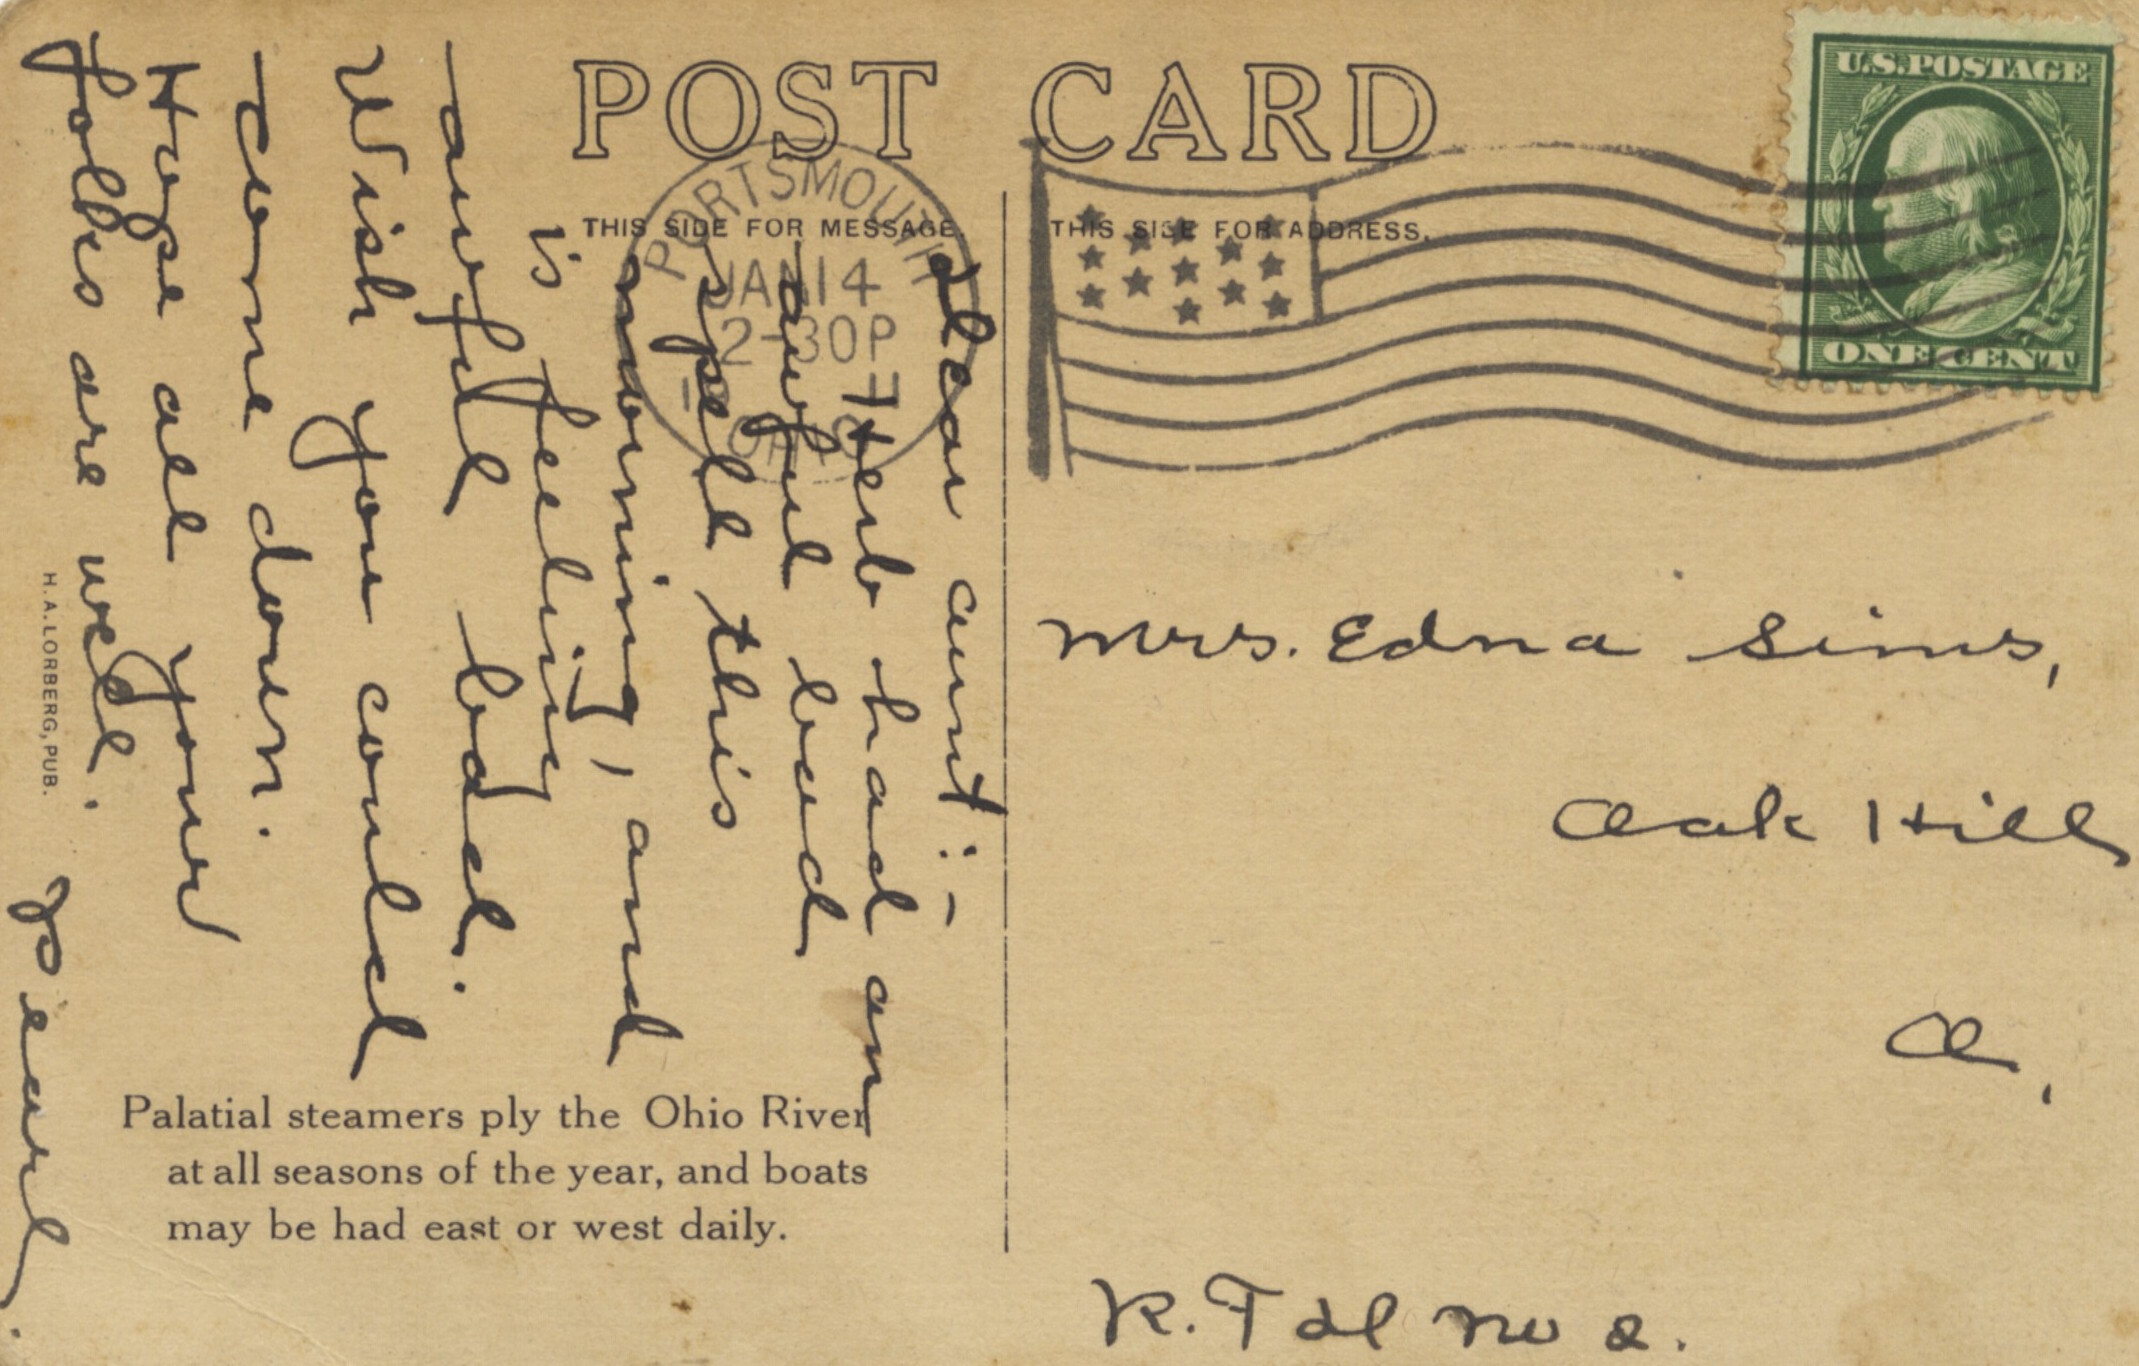 POST CARD
THIS SIDE FOR MESSAGE.
THIS SIDE FOR ADDRESS.
U.S. POSTAGE
ONE CENT
PORTSMOUTH
JAN 14
2-30P
OHIO
dear aunt:-
Herb had an
awful bad
spell this
morning, and
is feeling
awful bad.
Wish you could
come down.
Hope all your
folks are well.
Pearl.
H. A. LORBERG, PUB.
Palatial steamers ply the Ohio River
at all seasons of the year, and boats
may be had east or west daily.
Mrs. Edna Sims,
Oak Hill
O.
R. F d No 2.